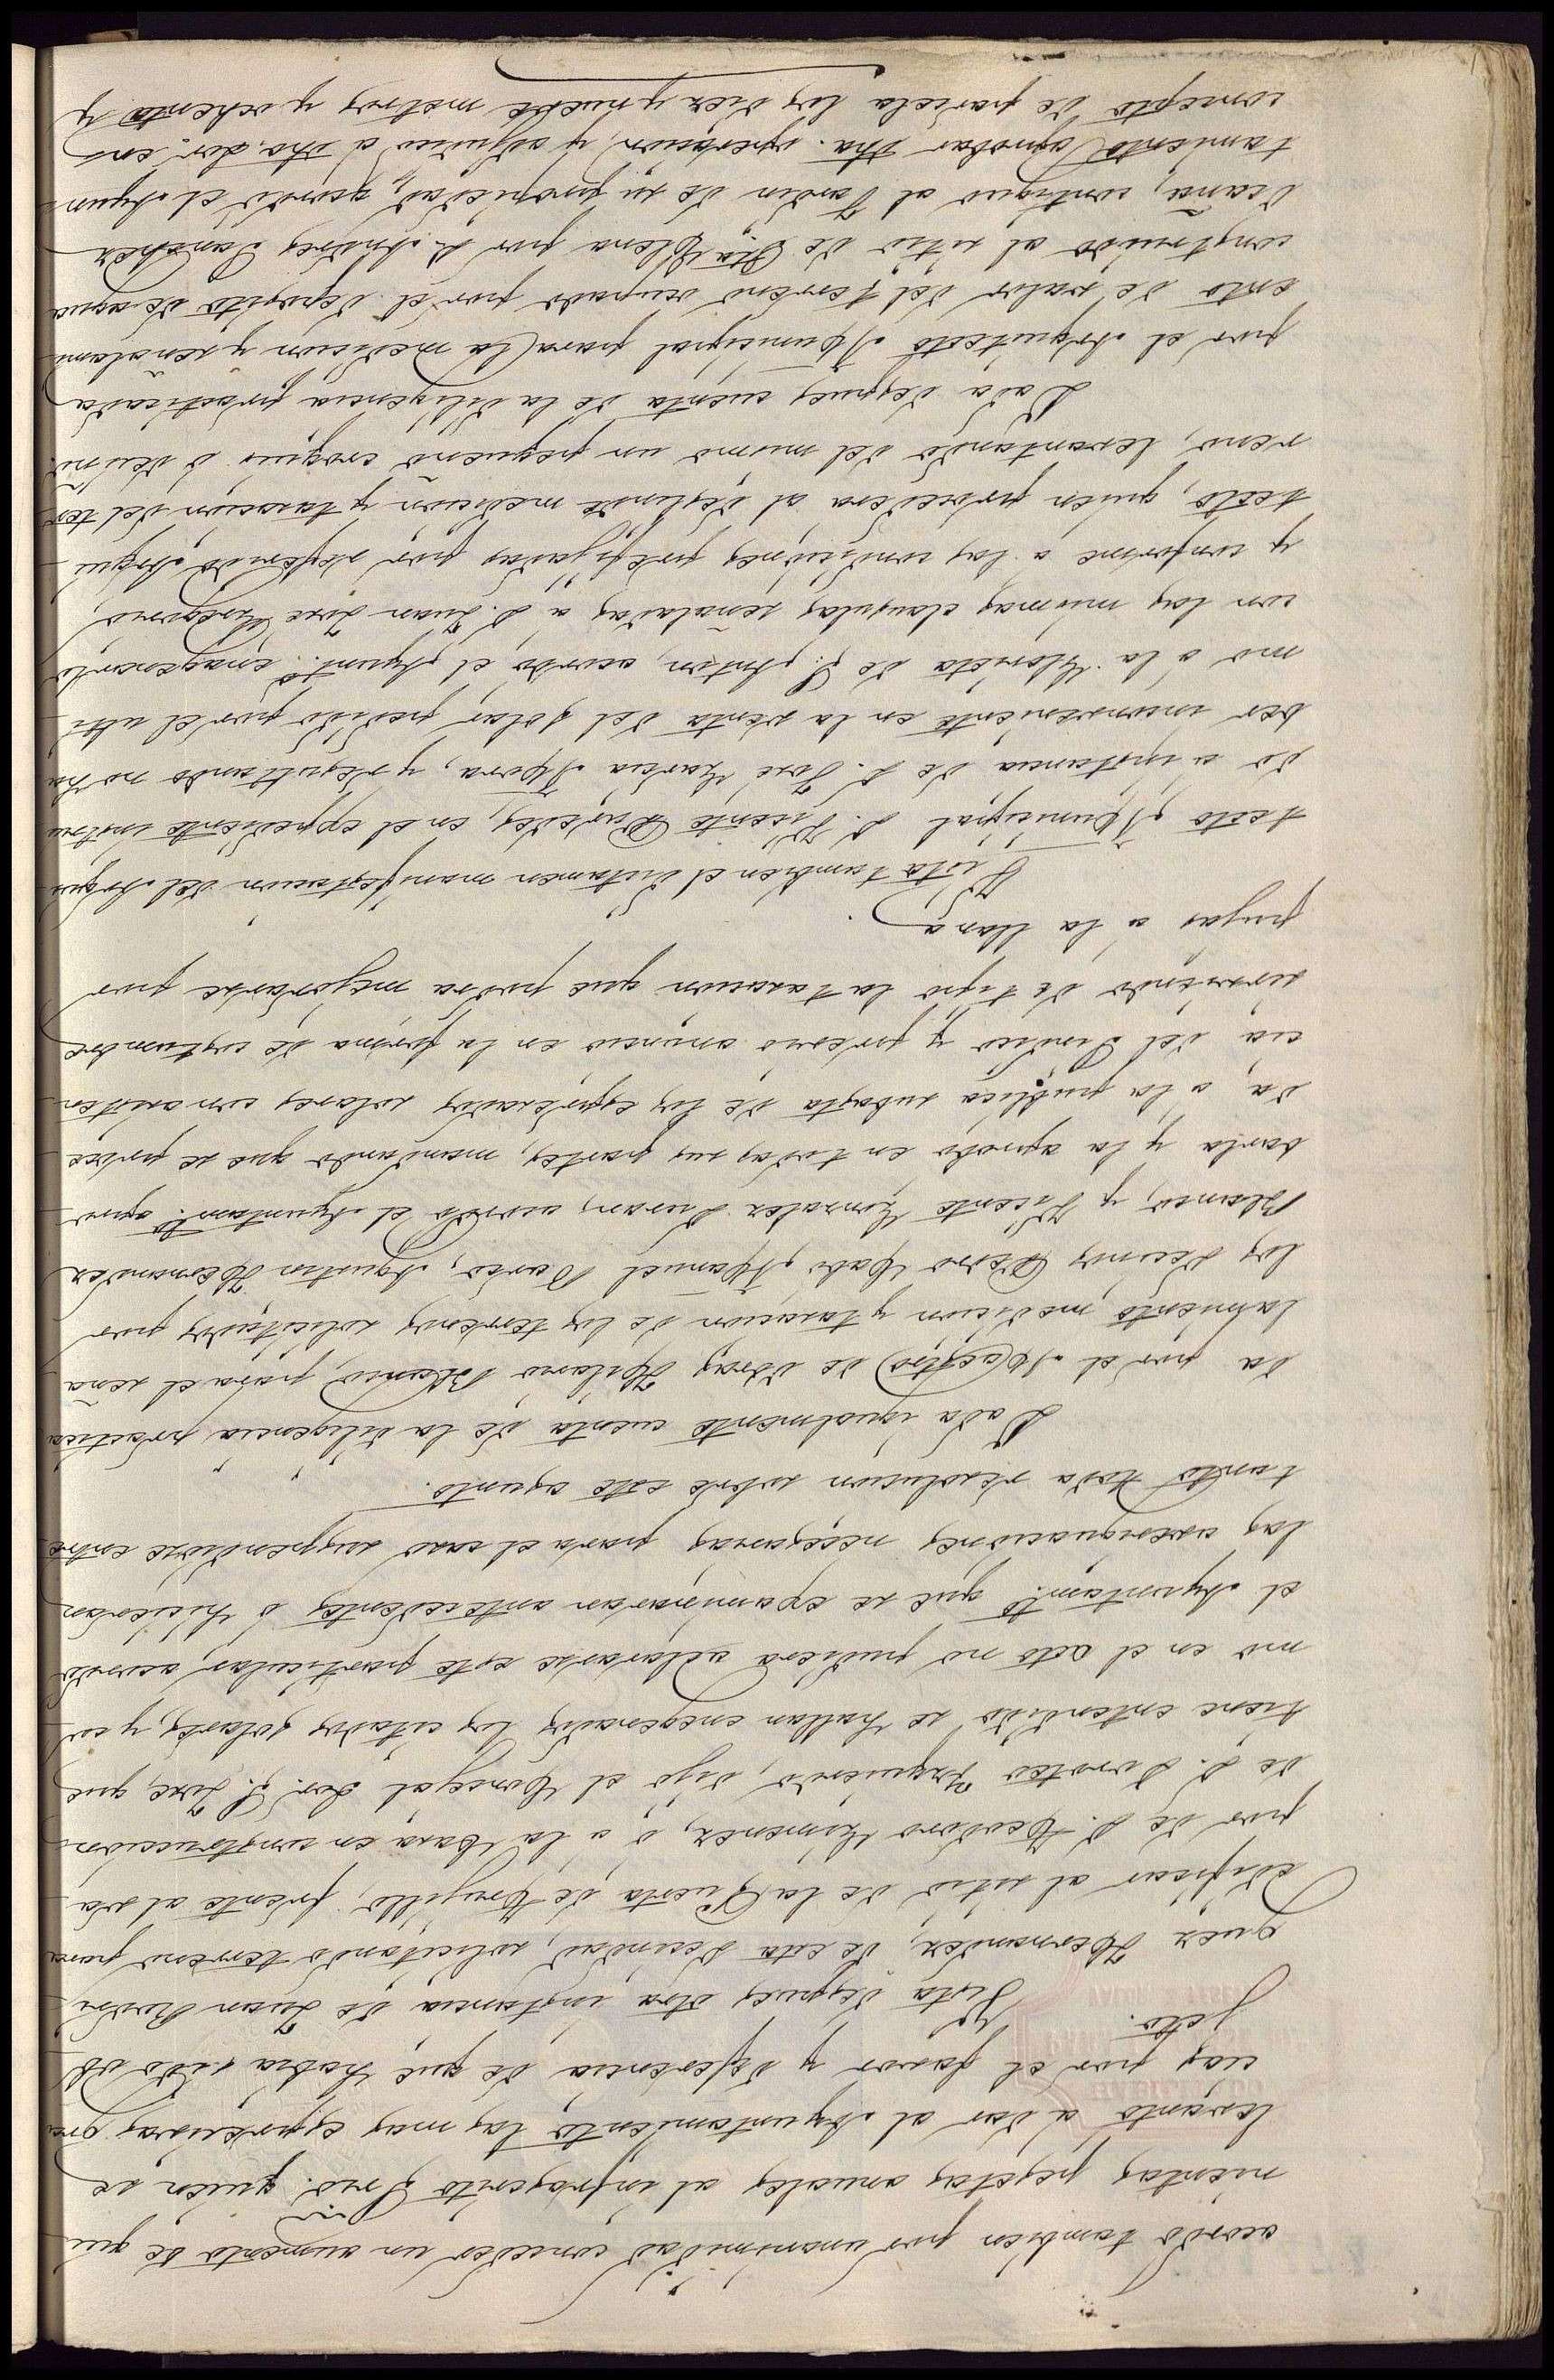 acordo tambien por unanimidad conceder un aumento de qui
nientas pesetas anuales al infrascrito Srio. quien se
levantó a dar al Ayuntamiento las mas expresivas gra
cias por el favor y deferencia de que habia sido ob
jeto.
Vista despues otra instancia de Juan Rodri
guez Hernandez, de esta vecindad, solicitando terreno para
edificar al sitio de la Puerta de Trujillo, frente al sola
por de D. Teodoro Ximenez, ó á la Casa en construccion
de D. Doroteo Izquierdo, dijo el Concejal Sor. S. José, que
tiene entendido se hallan enagenados los citados solares, y co
mo en el acto no pudiera aclararse este particular, acordó
el Ayuntamto. que se examinaran antecedentes ó hicieran
las averiguaciones necesarias para el caso suspendiose entre
tanto toda resolucion sobre este asunto.
Dada igualmente cuenta de la diligencia practica
da por el Maestro de obras Hilario Blanco, para el seña
lamiento, medicion y tasacion de los terrenos solicitados por
los vecinos Pedro Cabo, Manuel Pardo, Agustin Hernandez
Blanco, y Vicente Gonzalez Duran, acordó el Ayuntamto. apro
barla y la aprobó en todas sus partes, mandando que se proce
da, a la publica subasta de los expresados solares con asisten
cia del Sindico y previo anuncio en la forma de costumbre
sirviendo de tipo la tasacion que podra mejorarse por
pujas a la llana.
Vista tambien el dictamen manifestacion del Arqui
tecto Municipal D. Vicente Paredes, en el expediente instrui
do a instancia de D. José Garcia Mora, y resultando no ha
ber inconveniente en la venta del solar pedido por el ulti
mo á la Glorieta de S. Anton, acordó el Ayunto. enagenarlo
con las mismas clausulas señaladas a D. Juan José Gregorio,
y conforme a las condiciones prefijadas por referido Arqui
tecto, quien procedera al deslinde medicion y tasacion del ter
reno, levantando del mismo un pequeño croquis ó diseño.
Dada despues cuenta de la diligencia practicada
por el Arquitecto Municipal para la medicion y señalami
ento de valor del terreno ocupado por el deposito de agua
construido al sitio de Sta. Elena por D. Andres Sanchez
Ocaña, contiguo al Jardin de su propiedad, acordó el Ayun
tamiento aprobar dha. operacion, y adjudicó a dho. Sor. en
concepto de parcela los diez y nueve metros y ochenta y